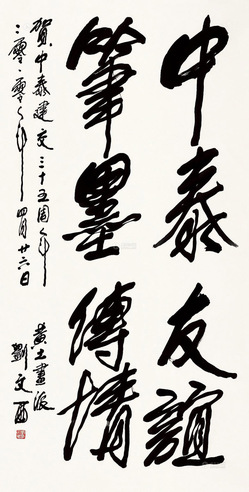 中泰友誼
筆墨傳情
賀中泰建交三十五周年
二零一零年四月廿六日
黄土畫派
劉文西